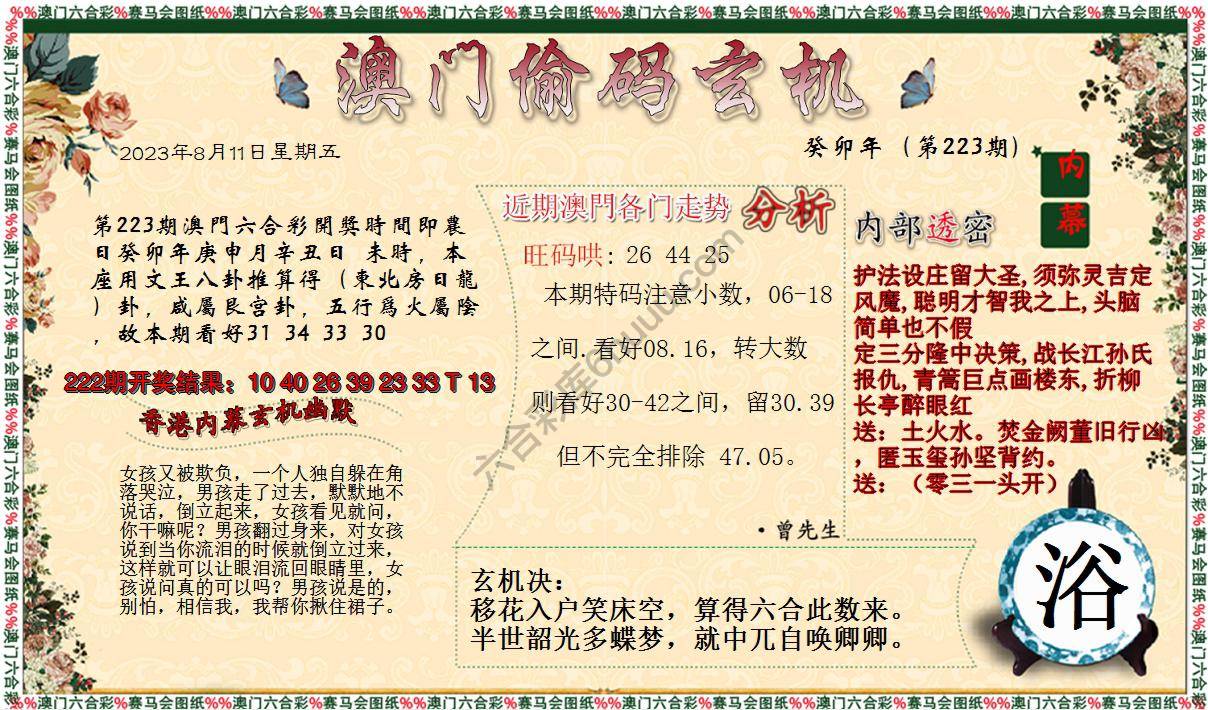 %%澳门六合彩%赛马会图纸%%澳门六合彩%赛马会图纸%%澳门六合彩%赛马会图纸%%澳门六合彩%赛马会图纸%%澳门六合彩%赛马会图纸%%澳门六合彩%赛马会图纸%%
澳门偷码玄机
2023年8月11日星期五
癸卯年（第223期）
内
幕
第223期澳門六合彩開獎時間即農
日癸卯年庚申月辛丑日 未時，本
座用文王八卦推算得（東北房日龍
）卦，咸屬艮宮卦，五行爲火屬陰
，故本期看好31 34 33 30
222期开奖结果：10 40 26 39 23 33 T 13
香港内幕玄机幽默
女孩又被欺负，一个人独自躲在角
落哭泣，男孩走了过去，默默地不
说话，倒立起来，女孩看见就问，
你干嘛呢？男孩翻过身来，对女孩
说到当你流泪的时候就倒立过来，
这样就可以让眼泪流回眼睛里，女
孩说问真的可以吗？男孩说是的，
别怕，相信我，我帮你揪住裙子。
近期澳門各门走势 分析
旺码哄: 26 44 25
本期特码注意小数，06-18
之间.看好08.16，转大数
则看好30-42之间，留30.39
但不完全排除 47.05。
·曾先生
玄机决：
移花入户笑床空，算得六合此数来。
半世韶光多蝶梦，就中兀自唤卿卿。
内部透密
护法设庄留大圣,须弥灵吉定
风魔,聪明才智我之上,头脑
简单也不假
定三分隆中决策,战长江孙氏
报仇,青篙巨点画楼东,折柳
长亭醉眼红
送：土火水。焚金阙董旧行凶
，匿玉玺孙坚背约。
送：（零三一头开）
浴
六合彩库6huuu.com